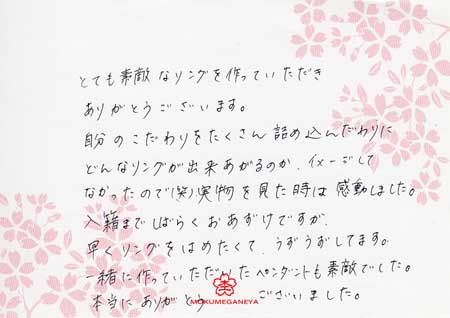 とても素敵なリングを作っていただき
ありがとうございます。
自分のこだわりをたくさん詰め込んだわりに
どんなリングが出来あがるのか、イメージして
なかったので(笑)実物を見た時は感動しました。
入籍までしばらくおあずけですが、
早くリングをはめたくて、うずうずしてます。
一緒に作っていただいたペンダントも素敵でした。
本当にありがとうございました。
MOKUMEGANEYA